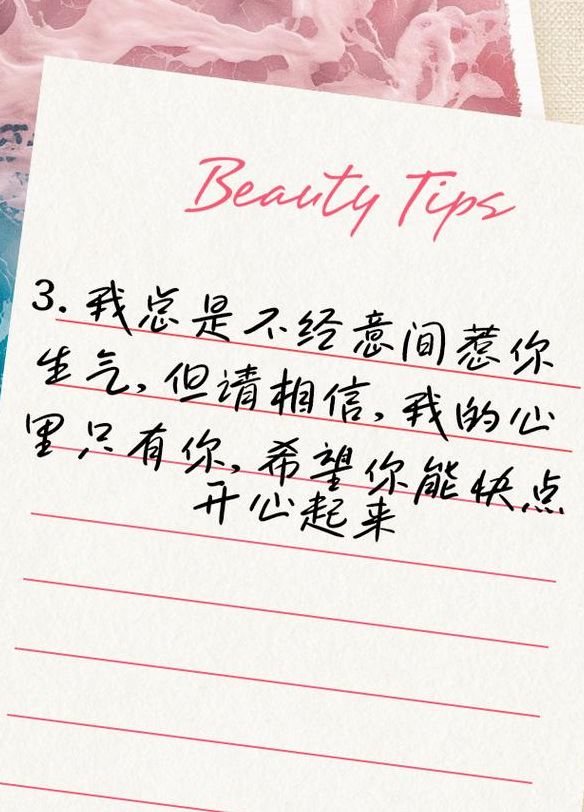 Beauty Tips
3. 我总是不经意间惹你
生气,但请相信,我的心
里只有你,希望你能快点
开心起来